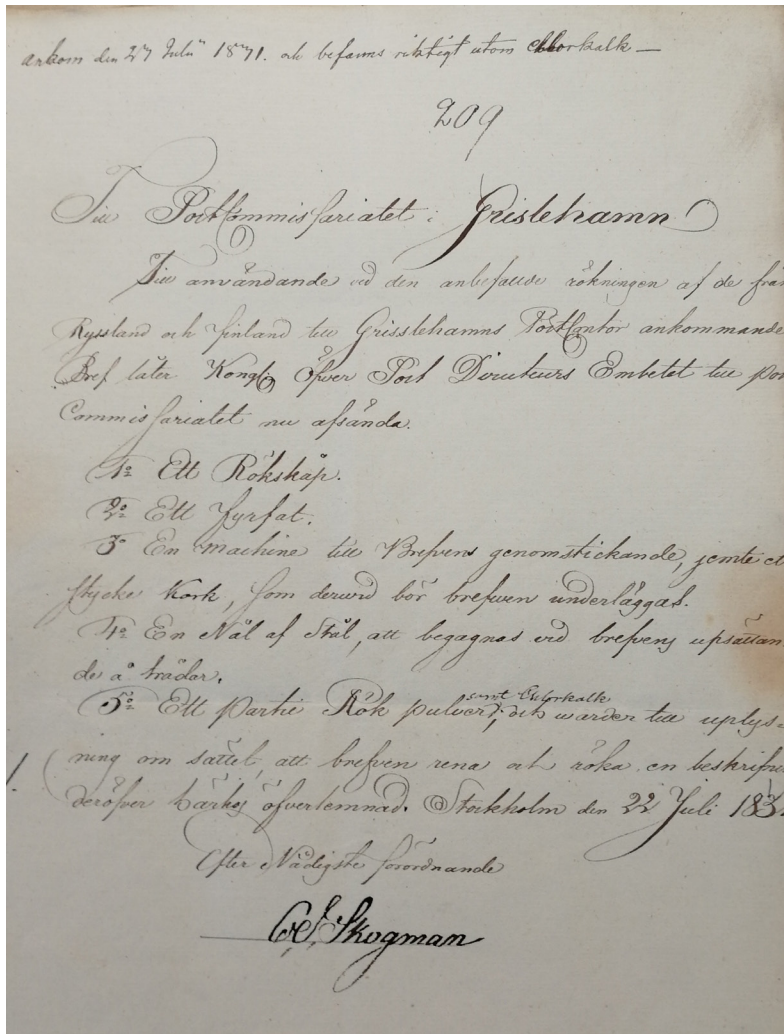 ankom den 27 Julii 1831. och befanns riktigt utom Chlorkalk —
209
Till PostCommissariatet i Grislehamn
Till användande vid den anbefallde rökningen af de från
Ryssland och Finland till Grisslehamns PostContor ankommande
Bref låter Kongl. Öfver Post Directeurs Embetet till Post
Commissariatet nu afsända.
1o Ett Rökskåp.
2o Ett Fyrfat.
3o En machine till Brefvens genomstickande, jemte et
stycke Kork, som derwid bör brefwen underläggas.
4o En Nål af Stål, att begagnas vid brefvens upsättan-
de å trådar.
5o Ett partie Rök pulver, samt Chlorkalk och warder till uplys-
ning om sättet, att brefven rena och röka en beskrifning
deröfver härhos öfverlemnad. Stockholm den 22 Juli 1831
Efter Nådigste förordnande
C. J. Skogman